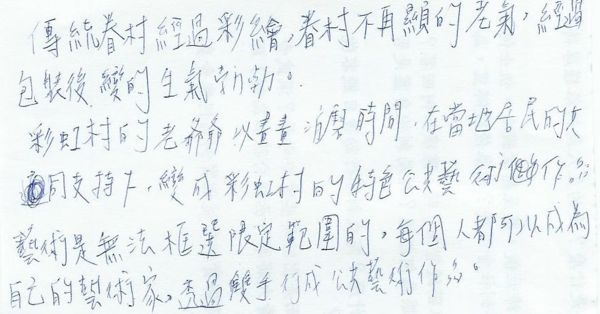 傳統眷村經過彩繪，眷村不再顯的老氣，經過
包裝後變的生氣勃勃。
彩虹村的老爺爺以畫畫消磨時間，在當地居民的大
同支持下，變成彩虹村的特色公共藝術作品。
藝術是無法框選限定範圍的，每個人都可以成為
自己的藝術家，透過雙手行成公共藝術作品。